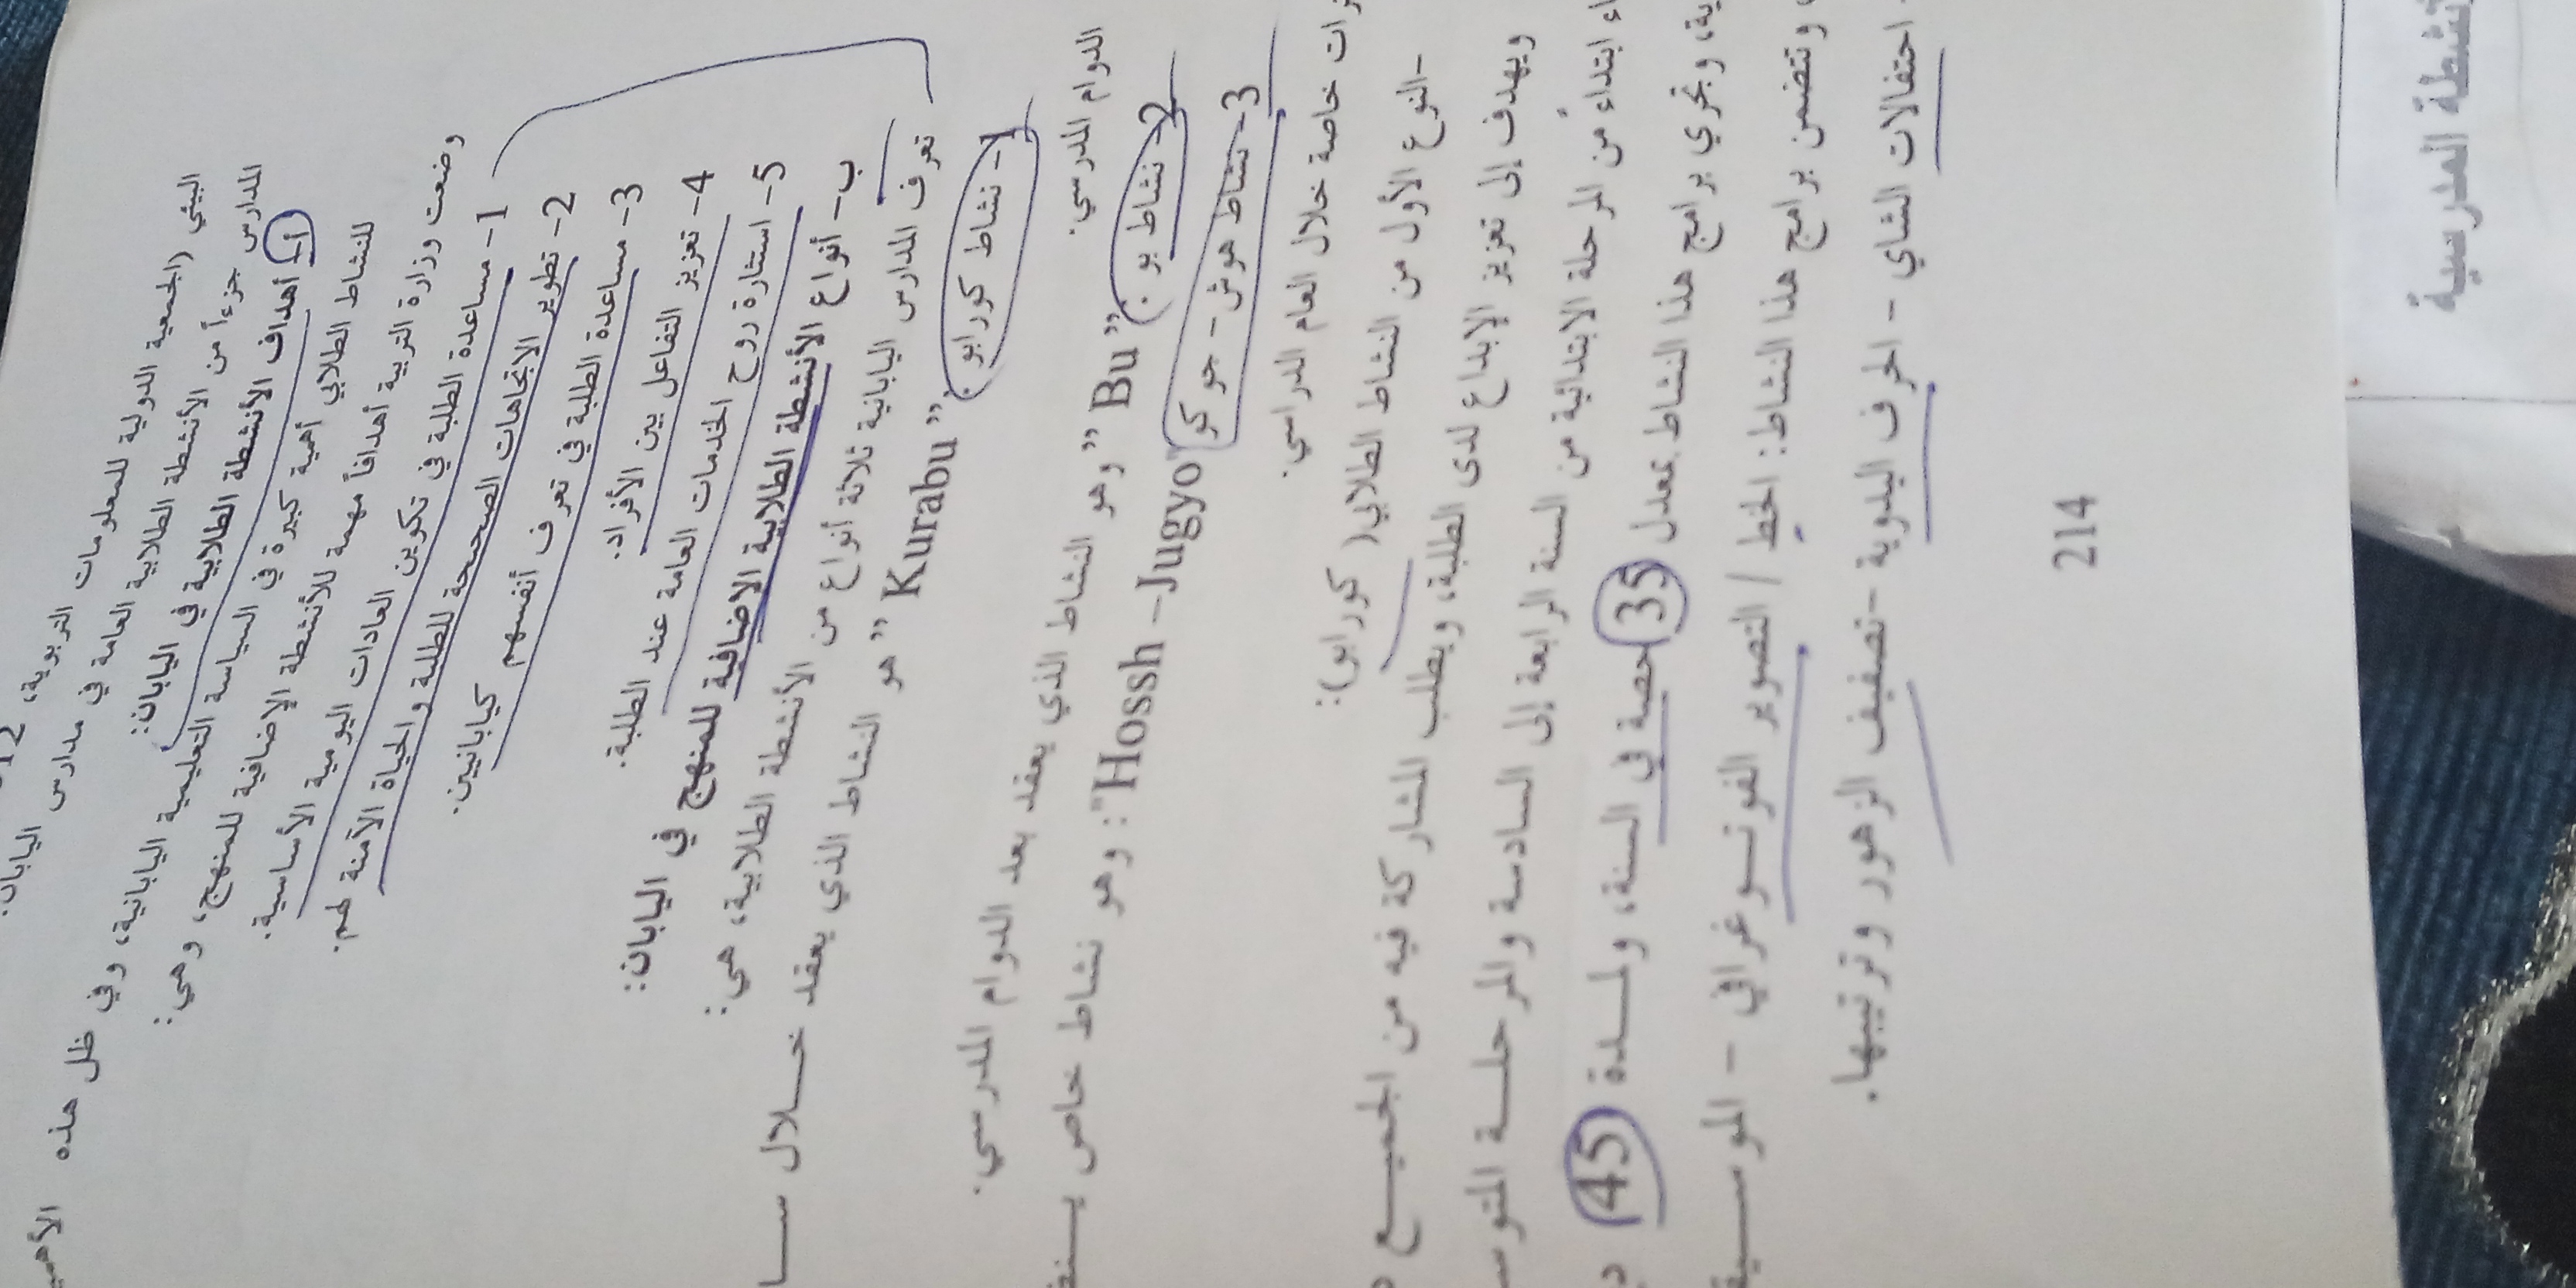 البيئي (الجمعية الدولية للمعلومات التربوية،
المدارس جزءاً من الأنشطة الطلابية العامة في مدارس اليابان.
أ- أهداف الأنشطة الطلابية في اليابان:
للنشاط الطلابي أهمية كبيرة في السياسة التعليمية اليابانية، وفي ظل هذه
وضعت وزارة التربية أهدافاً مهمة للأنشطة الإضافية للمنهج، وهي:
1- مساعدة الطلبة في تكوين العادات اليومية الأساسية.
2- تطوير الاتجاهات الصحيحة للطلبة والحياة الآمنة لهم.
3- مساعدة الطلبة في تعرف أنفسهم كيابانيين.
4- تعزيز التفاعل بين الأفراد.
5- استثارة روح الخدمات العامة عند الطلبة.
ب- أنواع الأنشطة الطلابية الاضافية للمنهج في اليابان:
تعرف المدارس اليابانية ثلاثة أنواع من الأنشطة الطلابية، هي:
1- نشاط كورابو. "Kurabu" هو النشاط الذي يعقد خــلال
الدوام المدرسي.
2- نشاط بو. "Bu" وهو النشاط الذي يعقد بعد الدوام المدرسي.
3- نشاط هوش- جو كو "Hossh –Jugyo": وهو نشاط خاص
خاصة خلال العام الدراسي.
-النوع الأول من النشاط الطلابي( كورابو):
ويهدف إلى تعزيز الإبداع لدى الطلبة، ويطلب المشاركة فيه من الجميــع
ابتداءً من المرحلة الابتدائية من السنة الرابعة إلى السادسة والمرحلــة
وتجري برامج هذا النشاط بمعدل 35 حصة في السنة، ولمــدة 45
وتتضمن برامج هذا النشاط: الخط / التصوير الفوتــوغرافي -
احتفالات الشاي - الحرف اليدوية -تصفيف الزهور وترتيبها.
214
المدرسية